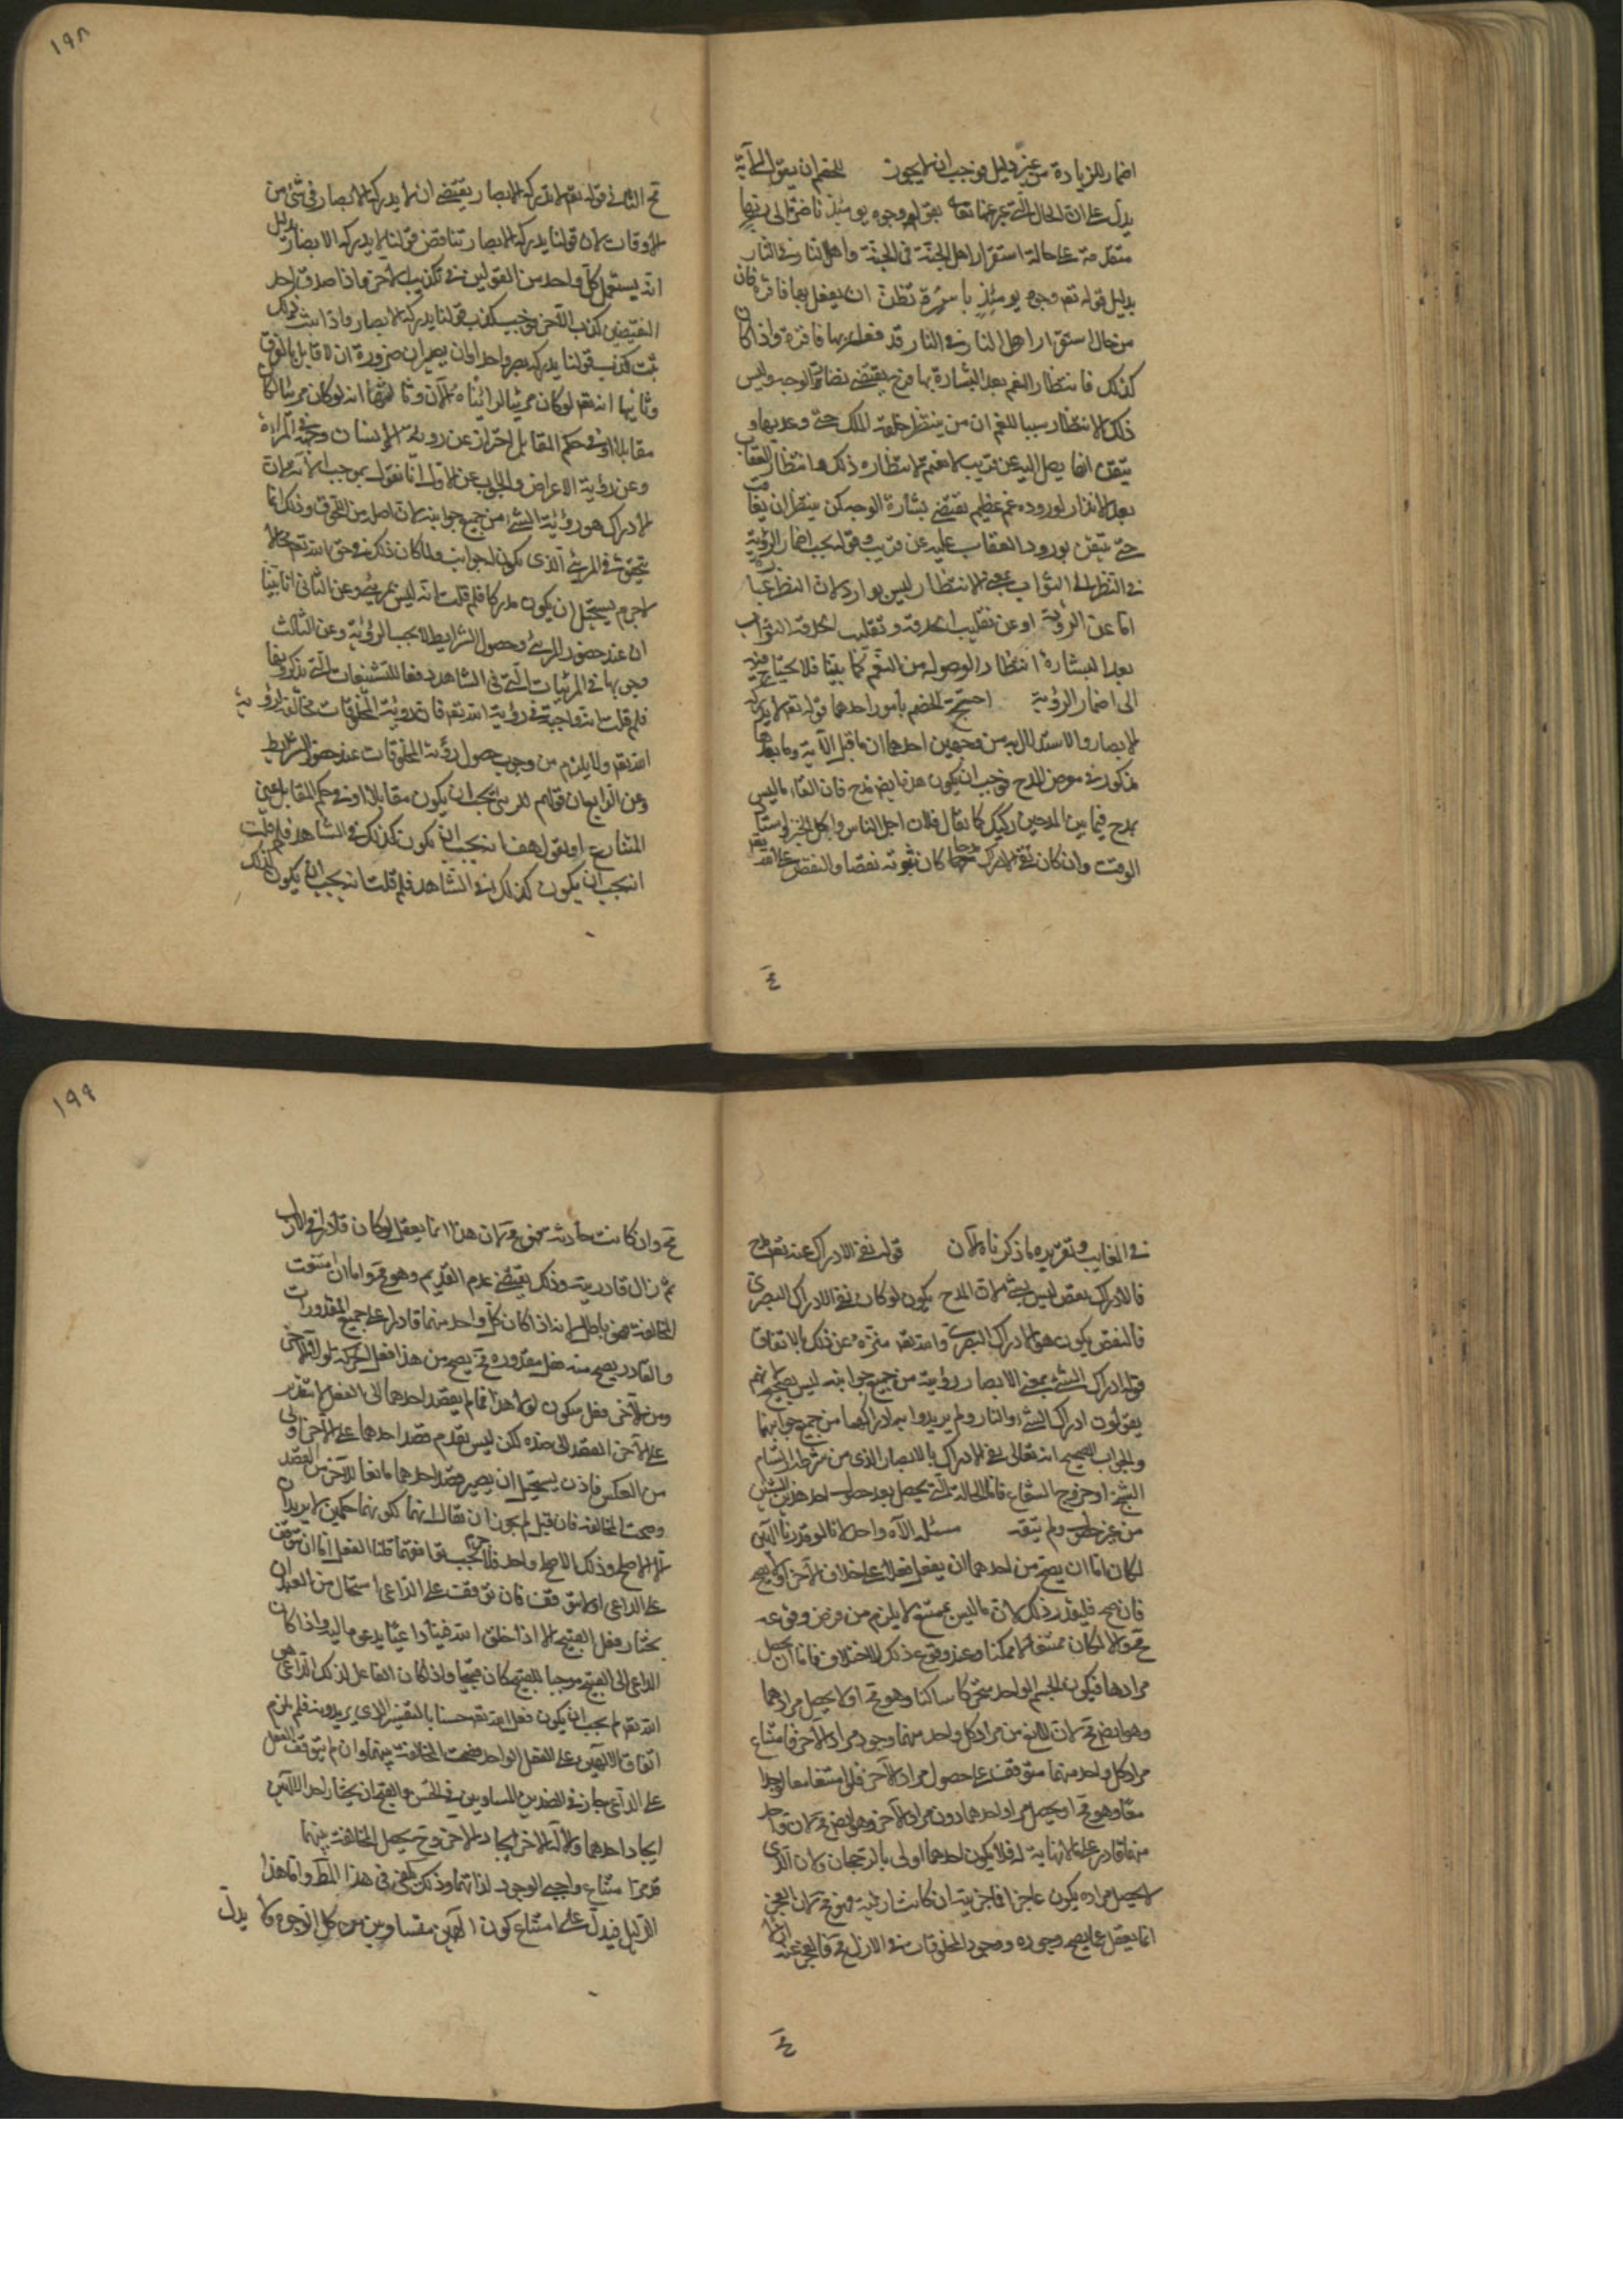 اضمار للزيادة من غير دليل فوجب ان لا يجوز للخصم ان يقول الآية
يدل على ان الحال التى عبر عنها تعالى بقوله وجوه يومئذ ناضرة الى ربها
متقدمة على حالة استقرار اهل الجنة فى الجنة واهل النار فى النار
بدليل قوله تعم وجوه يومئذ باسرة تظن ان يفعل بها فاقرة فان
من حال استقرار اهل النار فى النار قد فعل بها فاقرة واذا كان
كذلك فانتظار النعم بعد البشارة بها فرح يقتضى نضارة الوجه وليس
ذلك الانتظار سببا للغم ان من ينتظر خلعة الملك حتى وعد بها و
تيقن انها يصل اليه عن قريب لا يغم لانتظاره ذلك ها انتظار العقاب
بعد الانذار لوروده غم عظيم يقتضى بشارة الوجه كمن ينتظر ان يعاقب
حتى تيقن بورود العقاب عليه عن قريب وقوله يجب اضمار الرؤية
فى النظر الى الثواب بمعنى الانتظار ليس بوارد لان النظر عبارة
اما عن الرؤية او عن تقليب الحدقة وتقليب الحدقة الثواب
بعد البشارة انتظار الوصوله من النعم كما بينا فلا يحتاج فيه
الى اضمار الرؤية احتج الخصم بامور احدها قوله تعم لا يدركه
الابصار والاستدلال به من وجهين احدهما ان ما قبل الآية وما بعدها
مذكور فى معرض المدح فوجب ان يكون هذا ايض مدح فان القاء ما ليس
بمدح فيما بين المدحين ركيك كما يقال فلان اجل الناس واكل الخبز واستاد
الوقت وان كان نفى الادراك مدحا كان ثبوته نقصا والنقص على الله تعم
ع
١٩٨
مح الثانى قوله تعم لا تدركه الابصار يقتضى ان لا يدركه الابصار فى شئ من
الاوقات لان قولنا يدركه الابصار تناقض قولنا لا يدركه الابصار بدليل
انه يستعمل كل واحد من القولين فى تكذيب الاخر واذا صدق احد
النقيضين كذب الآخر فوجب كذب قولنا يدركه الابصار واذا ثبت ذلك
ثبت كذب قولنا يدركه بصر واحد او بصيران ضرورة ان لا قائل بالفرق
وثانيها انه تعم لو كان مرئيا لرأيناه الآن وثالثها انه لو كان مرئيا لكان
مقابلا او فى حكم المقابل احتراز عن رؤية الانسان وجهه فى المرآة
وعن رؤية الاعراض والجواب عن الاول انا نقول بموجب الآية لان
الادراك هو رؤية الشئ من جميع جوانبه لان اصله من اللحوق وذلك انما
يتحقق فى المرئى الذى يكون له جوانب ولما كان ذلك فى حق الله تعم محالا
لا جرم يستحيل ان يكون مدركا فلم قلت انه ليس بمرئى وعن الثانى انا بينا
ان عند حضور المرئى وحصول الشرايط لا يجب الرؤية وعن الثالث
وجوبها فى المرئيات التى فى الشاهد دفعا للتشنيعات التى يذكرونها
فلم قلت انه واجبة فى رؤية الله تعم فان رؤية المخلوقات مخالفة لرؤية
الله تعم ولا يلزم من وجوب حصول رؤية المخلوقات عند حضور الشرايط
وعن الرابع ان قولهم المرئى يجب ان يكون مقابلا او فى حكم المقابل عين
المتنازع او نقول هب انه يجب ان يكون كذلك فى الشاهد فلم قلت
انه يجب ان يكون كذلك فى الشاهد فلم قلت انه يجب ان يكون كذلك
فى الغايب وتقريره ما ذكرناه الآن قوله نفى الادراك عنه تعم مدح
فالادراك نقص ليس بشئ لان المدح يكون لو كان نفى الادراك البصرى
فالنقص يكون هو الادراك البصرى والله تعم منزه عن ذلك بالاتفاق
قوله ادراك الشئ بمعنى الابصار رؤيته من جميع جوانبه ليس بصحيح لانهم
يقولون ادراك الشئ والنار ولم يريدوا به ادراكهما من جميع جوانبهما
والجواب الصحيح انه تعالى نفى الادراك بالابصار الذى من شرطه ارتسام
الشبح او خروج الشعاع فاما الحالة التى يحصل بعد حصول احد هذين الشيئين
من غير حصوله ولم ينفه مسئلة الآله واحد لانا لو قدرنا الهين
لكان اما ان يصح من احدهما ان يفعل فعلا على خلاف الآخر او لا يصح
فان صح فليقدر ذلك لان ما ليس بممتنع لا يلزم من فرض وقوعه
مح والا لكان ممتنعا لا ممكنا وعند وقوع ذلك الاختلاف فاما ان يحصل
مرادهما فيكون الجسم الواحد متحركا ساكنا وهو مح او لا يحصل مرادهما
وهو ايض مح لان المانع من مراد كل واحد منهما وجود مراد الآخر فامتناع
مراد كل واحد منهما متوقف على حصول مراد الآخر فلو امتنعا معا لوجدا
معا وهو مح او يحصل مراد احدهما دون مراد الآخر وهو ايض مح لان كل واحد
منهما قادر على ما لا نهاية له فلا يكون احدهما اولى بالرجحان ولان الذى
لا يحصل مراده يكون عاجزا فعاجزيته ان كانت ازلية فهو مح لان العجز
انما يعقل عما يصح وجوده ووجود المخلوقات فى الازل مح فالعجز عنه ازلا
ع
١٩٩
مح وان كانت حادثة فهو مح لان هذا انما يعقل لو كان قادرا فى الازل
ثم زال قادريته وذلك يقتضى عدم القديم وهو مح واما ان امتنعت
المخالفة فهو باطل لانه اذا كان كل واحد منهما قادرا على جميع المقدورات
والقادر يصح منه فعل مقدوره فح يصح من هذا فعل الحركة لولا الآخر
ومن الآخر فعل سكون لولا هذا فما لم يقصد احدهما الى الفعل لا يتعذر
على الآخر القصد الى ضده لكن ليس تقدم قصد احدهما على الآخر اولى
من العكس فاذن يستحيل ان يصير قصد احدهما مانعا للآخر من القصد
وصحت المخالفة فان قيل لم يجوز ان يقال انهما لكونهما حكيمين لا يريدان
الا الاصلح وذلك الاصلح واحد فلا جرم يجب توافقهما قلنا الفعل اما ان يتوقف
على الداعى او لا يتوقف فان توقفت على الداعى استحال من العبد ان
يختار فعل القبيح الا اذا خلق الله فينا داعيا يدعو ما اليه واذا كان
الداعى الى القبيح موجبا للقبيح كان قبيحا واذا كان الفاعل لذلك الداعى هو
الله تعم لم يجب ان يكون فعل الله تعم حسنا بالتفسير الذى يريدونه فلم يلزم
اتفاق الالهين على الفعل الواحد فصحت المخالفة بينهما وان لم يتوقف الفعل
على الداعى جاز فى الضدين المساويين فى الحسن والقبح ان يختار احد الالهين
ايجاد احدهما والاله الآخر ايجاد الآخر وح يحصل المخالفة بينهما
قد مر امتناع واجبى الوجود لذاتهما وذلك يكفى فى هذا المط واما هذا
الدليل فيدل على امتناع كون الهين متساويين من كل الوجوه ولا يدل